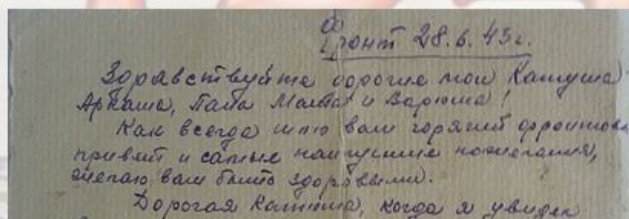 Фронт 28.6.43г.
Здравствуйте дорогие мои Катуша
Аркаша, Папа Мама и Варюша!
Как всегда шлю вам горячий фронтовой
привет и самые наилучшие пожелания,
желаю вам быть здоровыми.
Дорогая Катюша, когда я увидел